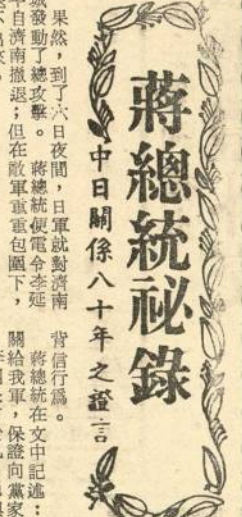 蔣總統祕錄
中日關係八十年之證言
果然,到了六日夜間,日軍就對濟南
城發動了總攻擊。蔣總統便電令李延
年自濟南撤退;但在敵軍重重包圍下,
背信行爲。
蔣總統在文中記述:
關給我軍,保證向黨家